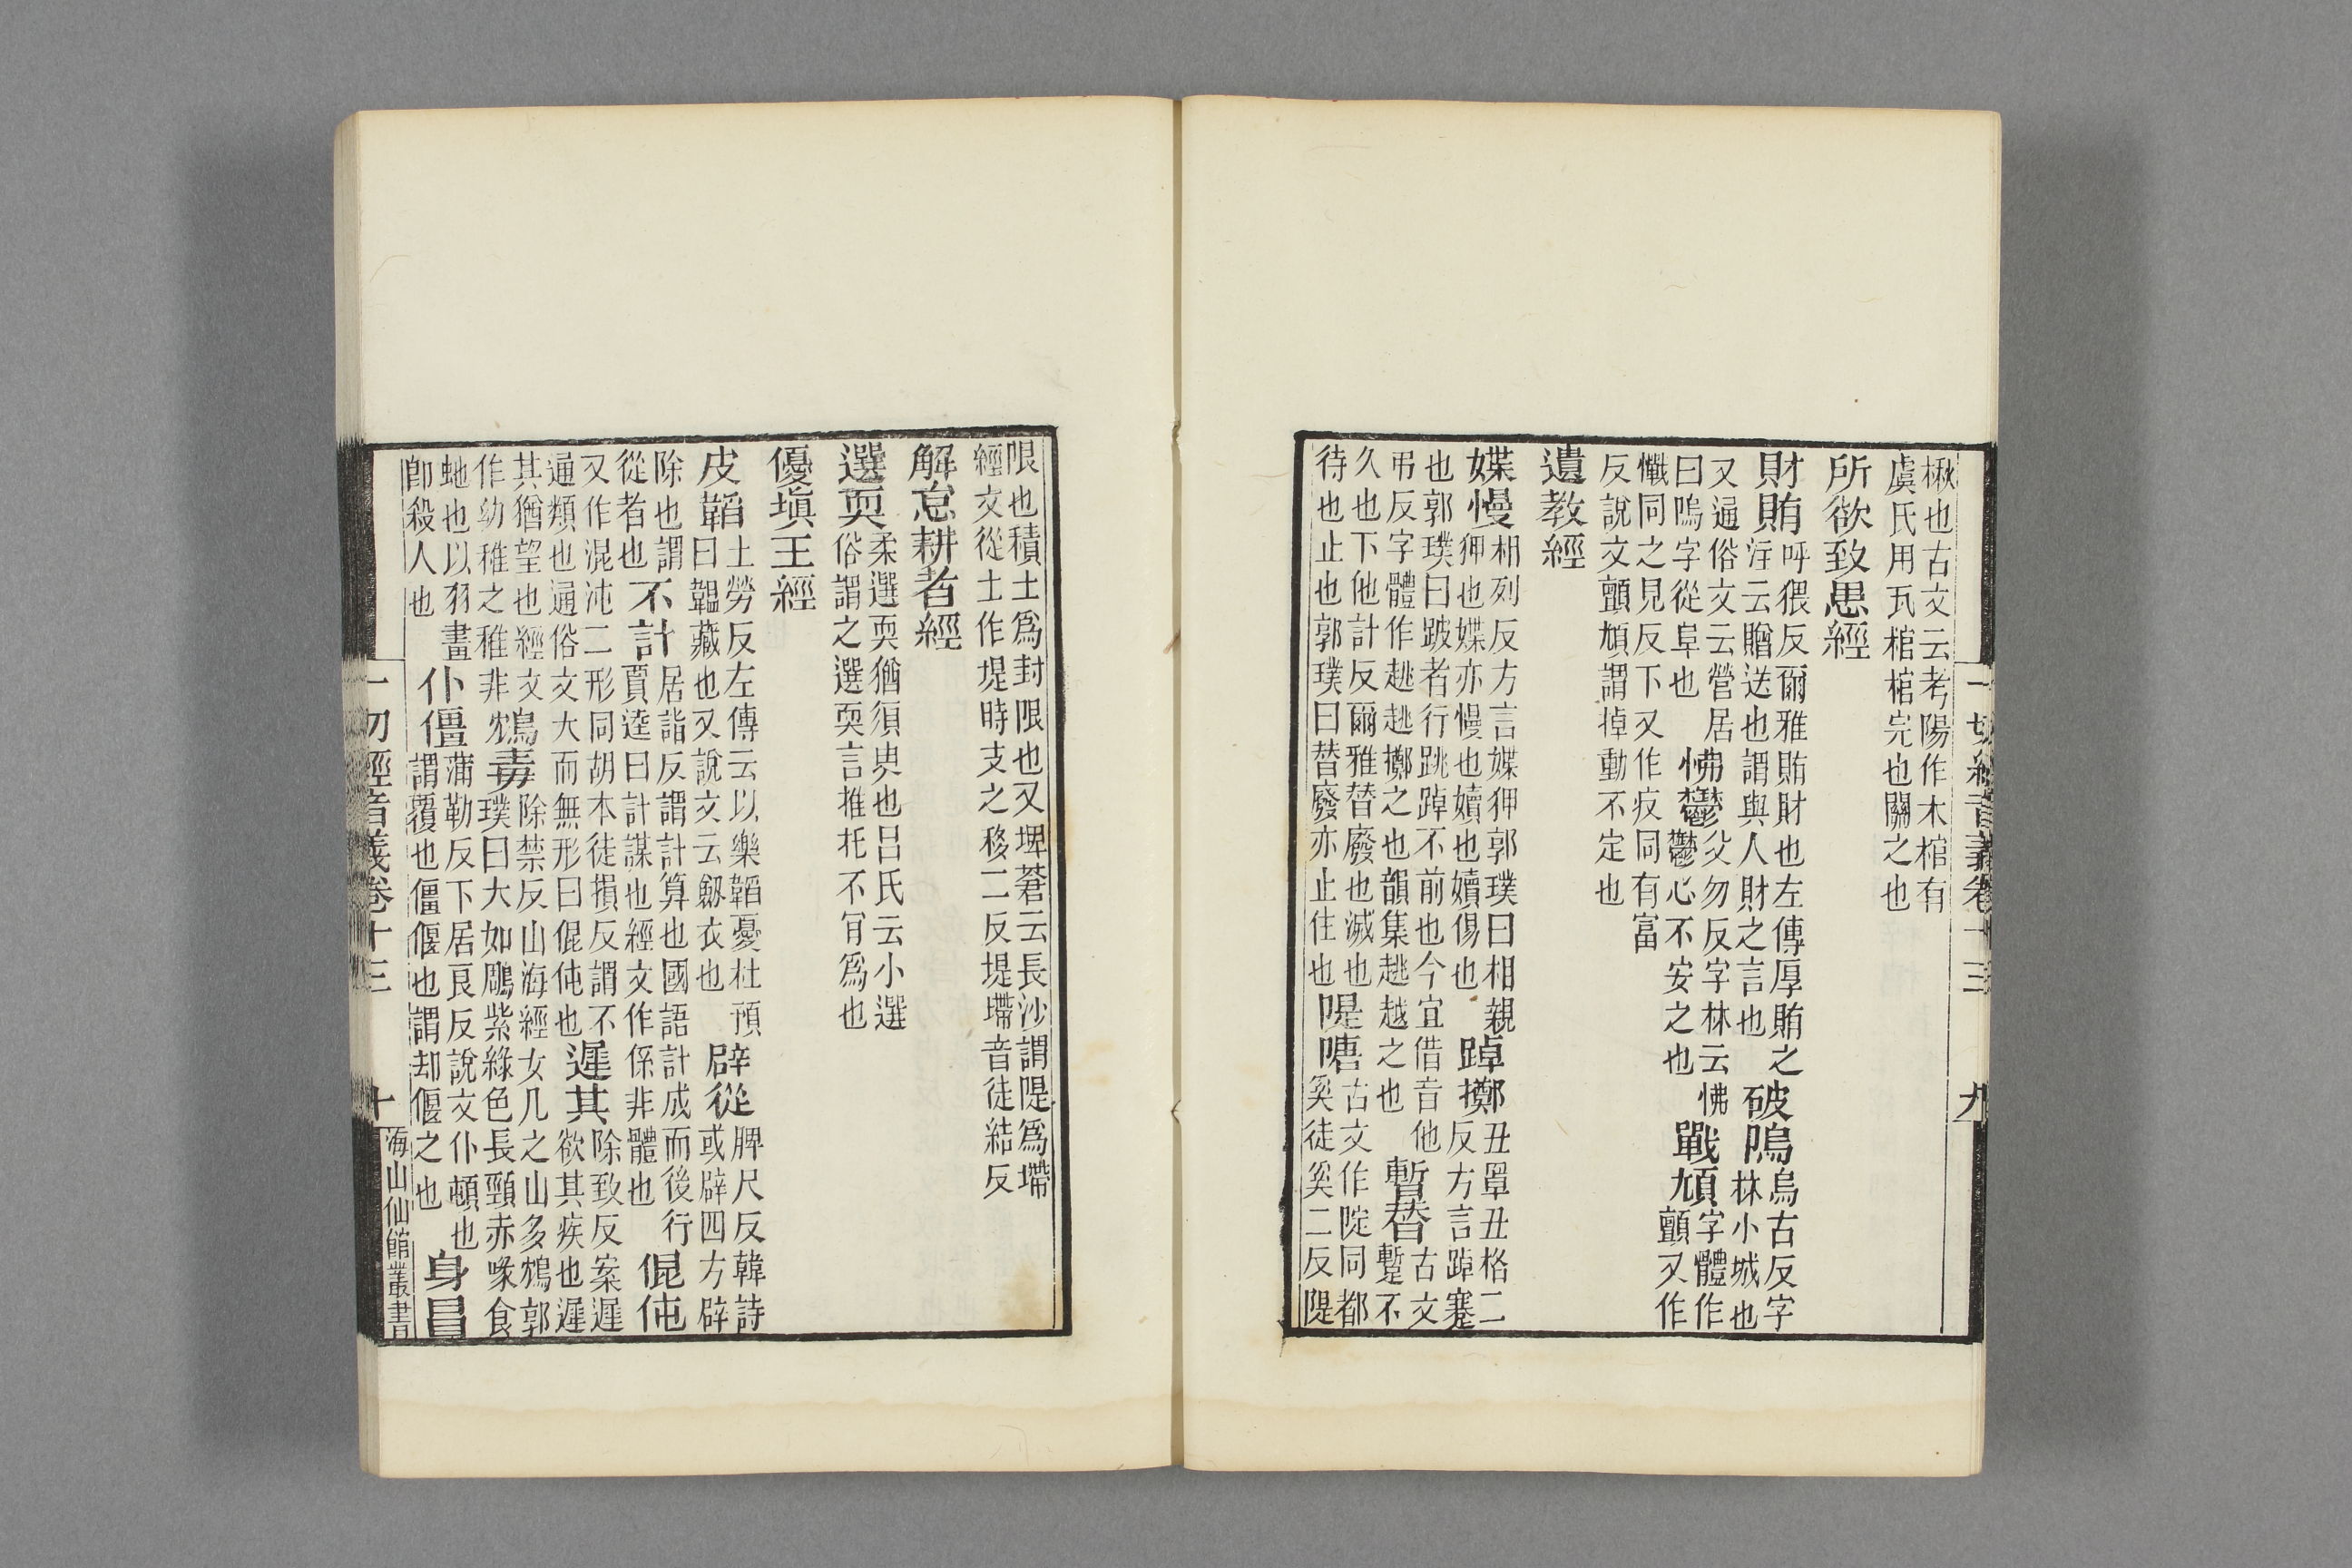 楸也古文云考陽作木棺有
虞氏用瓦棺棺完也關之也
所欲致患經
財賄呼猥反爾雅賄財也左傳厚賄之破隖烏古反字
注云贈送也謂與人財之言也林小城也
又通俗文云營居怫鬱父勿反字林云怫戰頄字體作
曰隖字從阜也鬱心不安之也顫又作
懺同之見反下又作疫同有富
反說文顫頄謂掉動不定也
遺教經
媟慢相列反方言媟狎郭璞曰相親踔擲丑罩丑格二
狎也媟亦慢也嬻也嬻傷也反方言踔蹇
也郭璞曰跛者行跳踔不前也今宜借音他暫替古文
弔反字體作趒趒擲之也韻集趒越之也蹔不
久也下他計反爾雅替廢也滅也隄隚古文作隄同都
待也止也郭璞曰替廢亦止住也奚徒奚二反隄
限也積土爲封限也又埤蒼云長沙謂隄爲墆
經文從土作堤時支之移二反堤墆音徒結反
解怠耕者經
選耎柔選耎猶須臾也呂氏云小選
俗謂之選耎言推托不肎爲也
優塡王經
皮韜土勞反左傳云以樂韜憂杜預辟從脾尺反韓詩
曰韞藏也又說文云劒衣也或辟四方辟
除也謂不計居詣反謂計算也國語計成而後行倱伅
從者也賈逵曰計謀也經文作係非體也
又作混沌二形同胡本徒損反謂不遲其除致反案遲
通類也通俗文大而無形曰倱伅也欲其疾也遲
其猶望也經文鴆毒除禁反山海經女几之山多鴆郭
作幼稚之稚非璞曰大如鵰紫綠色長頸赤喙食
虵也以羽畫仆僵蒲勒反下居良反說文仆頓也身冒
卽殺人也謂覆也僵偃也謂却偃之也
一切經音義卷十三
九
一切經音義卷十三
十
海山仙館叢書